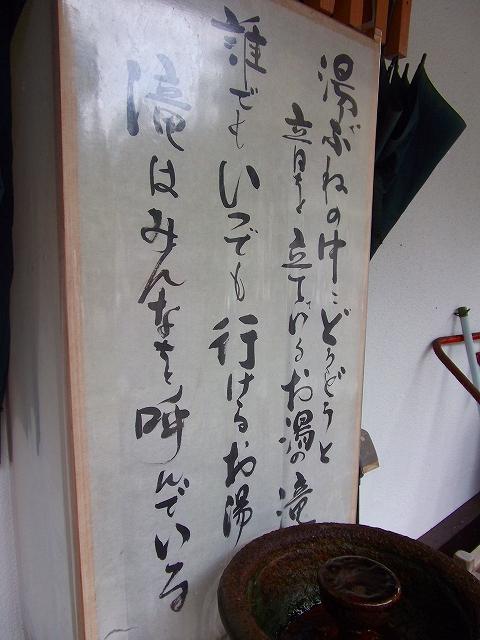 湯ぶねの中にどうどうと
音を立てているお湯の滝
誰でもいつでも行けるお湯
滝はみんなを呼んでいる